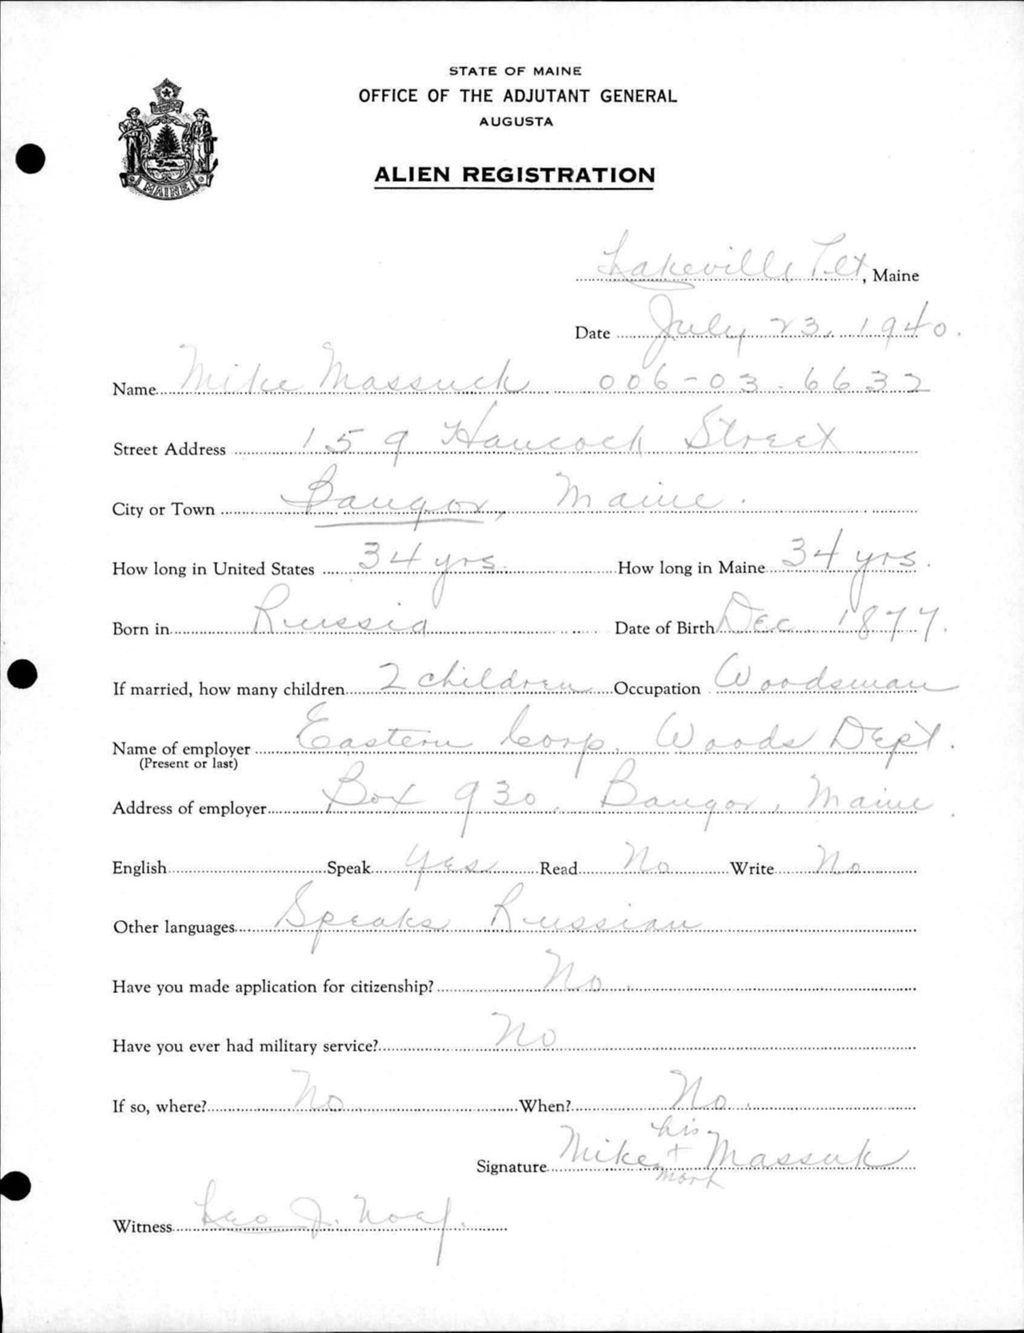 STATE OF MAINE
OFFICE OF THE ADJUTANT GENERAL
AUGUSTA
ALIEN REGISTRATION
MAINE
Lakeville Plt, Maine
Date July 23, 1940.
Name Mike Massuck 006-03-6632
Street Address 159 Hancock Street
City or Town Bangor, Maine.
How long in United States 34 yrs. How long in Maine 34 yrs.
Born in Russia Date of Birth Dec. 1877.
If married, how many children 2 children Occupation Woodsman
Name of employer Eastern Corp. Woods Dept.
(Present or last)
Address of employer Box 930, Bangor, Maine.
English Speak Yes Read No Write No
Other languages Speaks Russian
Have you made application for citizenship? No.
Have you ever had military service? No
If so, where? No When? No.
his
Signature Mike + Massuk
mark
Witness Leo J.